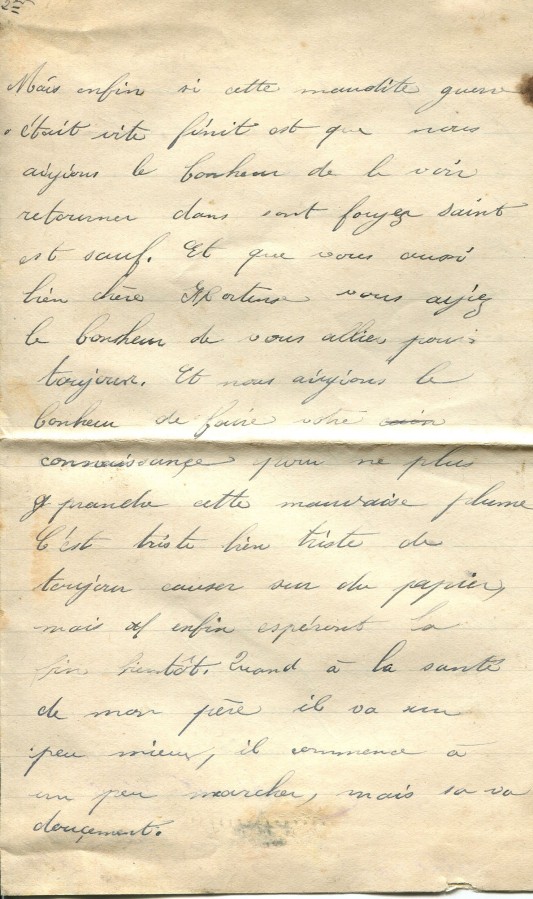 Mais enfin si cette maudite guerre
était vite finit est que nous
aiyions le bonheur de le voir
retourner dans sont foyez saint
est sauf. Et que vous aussi
bien chère Hortense vous ayiez
le bonheur de vous allier pour
toujour. Et nous aiyions le
bonheur de faire votre
connaissançe pour ne plus
prandre cette mauvaise plume
C'est triste bien triste de
toujour causer sur du papier,
mais enfin espéront la
fin bientôt. Quand à la santé
de mon père il va un
peu mieux, il commence à
un peu marcher, mais sa va
douçement.